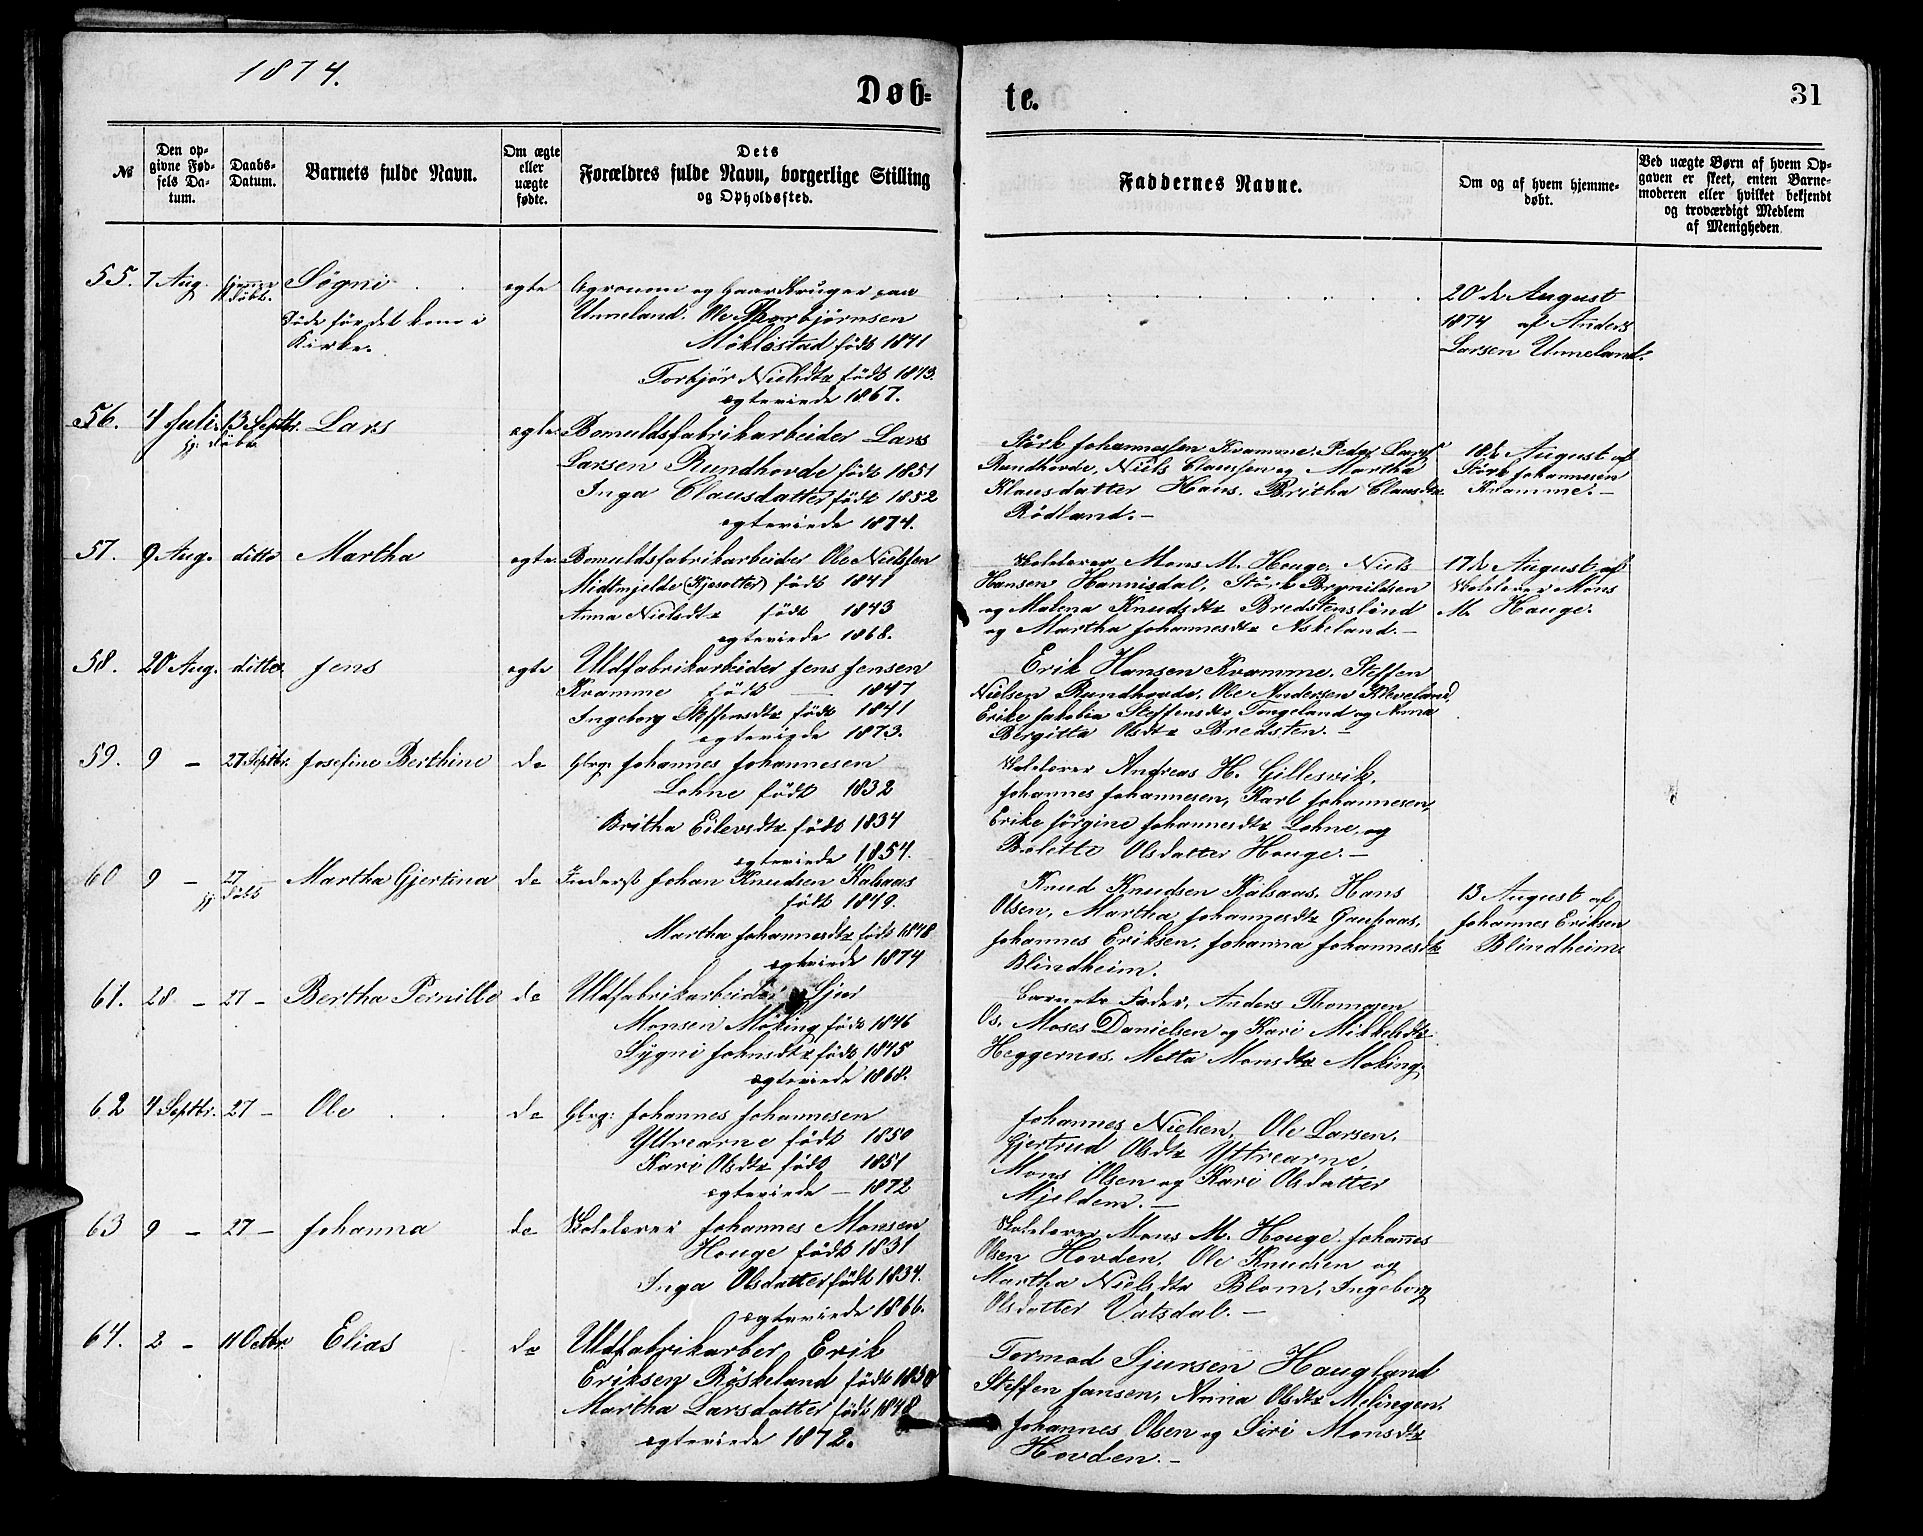 1874.
Døb-
te.
31
№
Den op-
givne Fød-
sels Da-
tum.
Daabs-
Datum.
Barnets fulde Navn.
Om ægte
eller
uægte
fødte.
Dets
Forældres fulde Navn, borgerlige Stilling
og Opholdssted.
Faddernes Navne.
Om og af hvem hjemme-
døbt.
Ved uægte Børn af hvem Op-
gaven er skeet, enten Barne-
moderen eller hvilket bekjendt
og troværdigt Medlem
af Menigheden
55. 7 Aug. hjemme Søgni egte Agronom og Gaardbruger paa
døbt.
Døde før det kom i
Kirke.
Unneland. Ole Thorbjørnsen
Möklestad født 1841
Torbjør Nielsdtr født 1843.
egteviede 1867.
20de August
1874 af Anders
Larsen Unneland.
56. 4 Juli 13 Septbr. Lars egte Bomuldsfabrikarbeider Lars
hj. døbt
Larsen Rundhovde født 1851
Inga Clausdatter født 1852
egteviede 1874.
Störk Johannessen Kvamme, Peder Lars
Rundhovde, Niels Claussen og Martha
Klausdatter Haus. Britha Clausdtr
Rødland.—
18de August af
Störk Johannesen
Kvamme.—
57. 9 Aug. ditto Martha egte Bomuldsfabrikarbeider Ole Nielsen
Midtmjelde (Kjesotter) født 1841
Anna Nielsdtr født 1843
egteviede 1868.
Skolelærer Mons M. Houge, Niels
Hansen Hannisdal, Störk Brynildsen
og Malena Knudsdtr Bredstenslönd
og Martha Johannesdtr Askeland.—
17de August af
Skolelærer Mons
M. Houge.
58. 20 Aug. ditto Jens egte Uldfabrikarbeider Jens Jensen
Kvamme født — 1847
Ingeborg Steffensdtr født 1841
egteviede 1873.
Erik Hansen Kvamme, Steffen
Nielsen Rundhovde, Ole Andersen Kleveland,
Erike Jakobia Steffensdtr Tongeland og Anna
Bergitta Olsdtr Bredsten.—
59. 9 — 27. Septbr. Josefine Berthine do Gbrg. Johannes Johannesen
Lohne født 1832
Britha Eilersdtr født 1834
egteviede 1854.
Skolelærer Andreas H. Gillesvik,
Johannes Johannesen, Karl Johannesen,
Erike Jörgine Johannesdtr Lohne, og
Bolette Olsdatter Houge.—
60 9 — 27 Martha Gjertina do Inderst Johan Knudsen Kalsaas
hj. døbt
født 1849.
Martha Johannesdtr født 1848
egteviede 1874
Knud Knudsen Kalsaas, Hans
Olsen, Martha Johannesdtr Gaupaas,
Johannes Eriksen, Johanna Johannesdtr
Blindheim.
13 August af
Johannes Eriksen
Blindheim
61. 28 — 27 — Bertha Pernille do Uldfabrikarbeider Sjur
Monsen Möking født 1846
Sygni Johnsdtr født 1845
egteviede 1868.
Barnets Fader, Anders Thomasen
Os, Moses Danielsen og Kari Mikkelsdtr
Heggernes, Metta Monsdtr Moking.
62 4 Septbr. 27 — Ole do Gbrg: Johannes Johannesen
Yttrearne født 1850
Kari Olsdtr født 1851
egteviede — 1872
Johannes Nielsen, Ole Larsen,
Gjertrud Olsdtr Yttrearne,
Mons Olsen og Kari Olsdatter
Mjeldem.—
63 9 — 27 — Johanna do Skolelærer Johannes Monsen
Houge født 1831
Inga Olsdatter født 1834.
egteviede 1866.
Skolelærer Mons M. Houge. Johannes
Olsen Hovden, Ole Knudsen og
Martha Nielsdtr Blom, Ingeborg
Olsdatter Vatsdal.—
64. 2 — 11 Octbr. Elias do Uldfabrikarber Erik
Eriksen Röskeland født 1830
Martha Larsdatter født 1848
egteviede 1872.
Tormod Sjursen Haugland
Steffen Jansen, Anna Olsdtr Melingen,
Johannes Olsen og Siri Monsdtr
Hovden.—